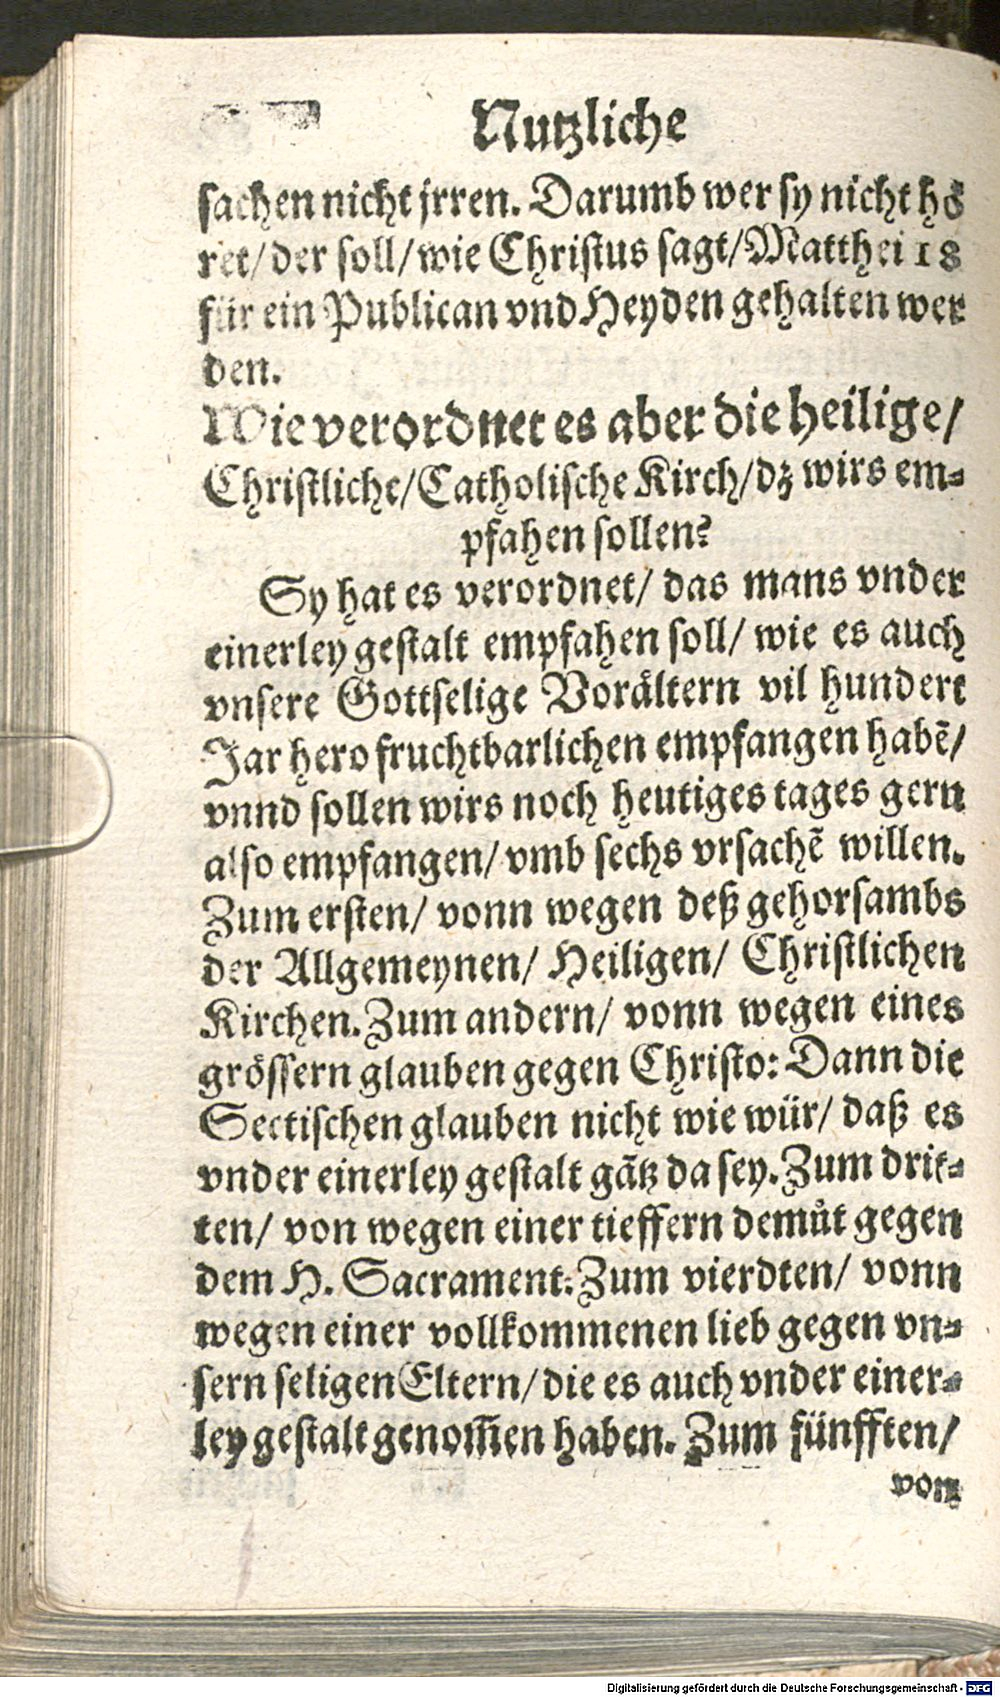 Nutzliche
sachen nicht jrren. Darumb wer sy nicht hö
ret/ der soll/ wie Christus sagt/ Matthei 18
für ein Publican vnd Heyden gehalten wer
den.
Wie verordnet es aber die heilige/
Christliche/ Catholische Kirch/ dz wirs em-
pfahen sollen?
Sy hat es verordnet/ das mans vnder
einerley gestalt empfahen soll/ wie es auch
vnsere Gottselige Vorältern vil hundert
Jar hero fruchtbarlichen empfangen habẽ/
vnnd sollen wirs noch heutiges tages gern
also empfangen/ vmb sechs vrsachẽ willen.
Zum ersten/ vonn wegen deß gehorsambs
der Allgemeynen/ Heiligen/ Christlichen
Kirchen. Zum andern/ vonn wegen eines
grössern glauben gegen Christo: Dann die
Sectischen glauben nicht wie wür/ daß es
vnder einerley gestalt gãtz da sey. Zum drit-
ten/ von wegen einer tieffern demůt gegen
dem H. Sacrament: Zum vierdten/ vonn
wegen einer vollkommenen lieb gegen vn-
sern seligen Eltern/ die es auch vnder einer-
ley gestalt genom̃en haben. Zum fünfften/
von
Digitalisierung gefördert durch die Deutsche Forschungsgemeinschaft - DFG